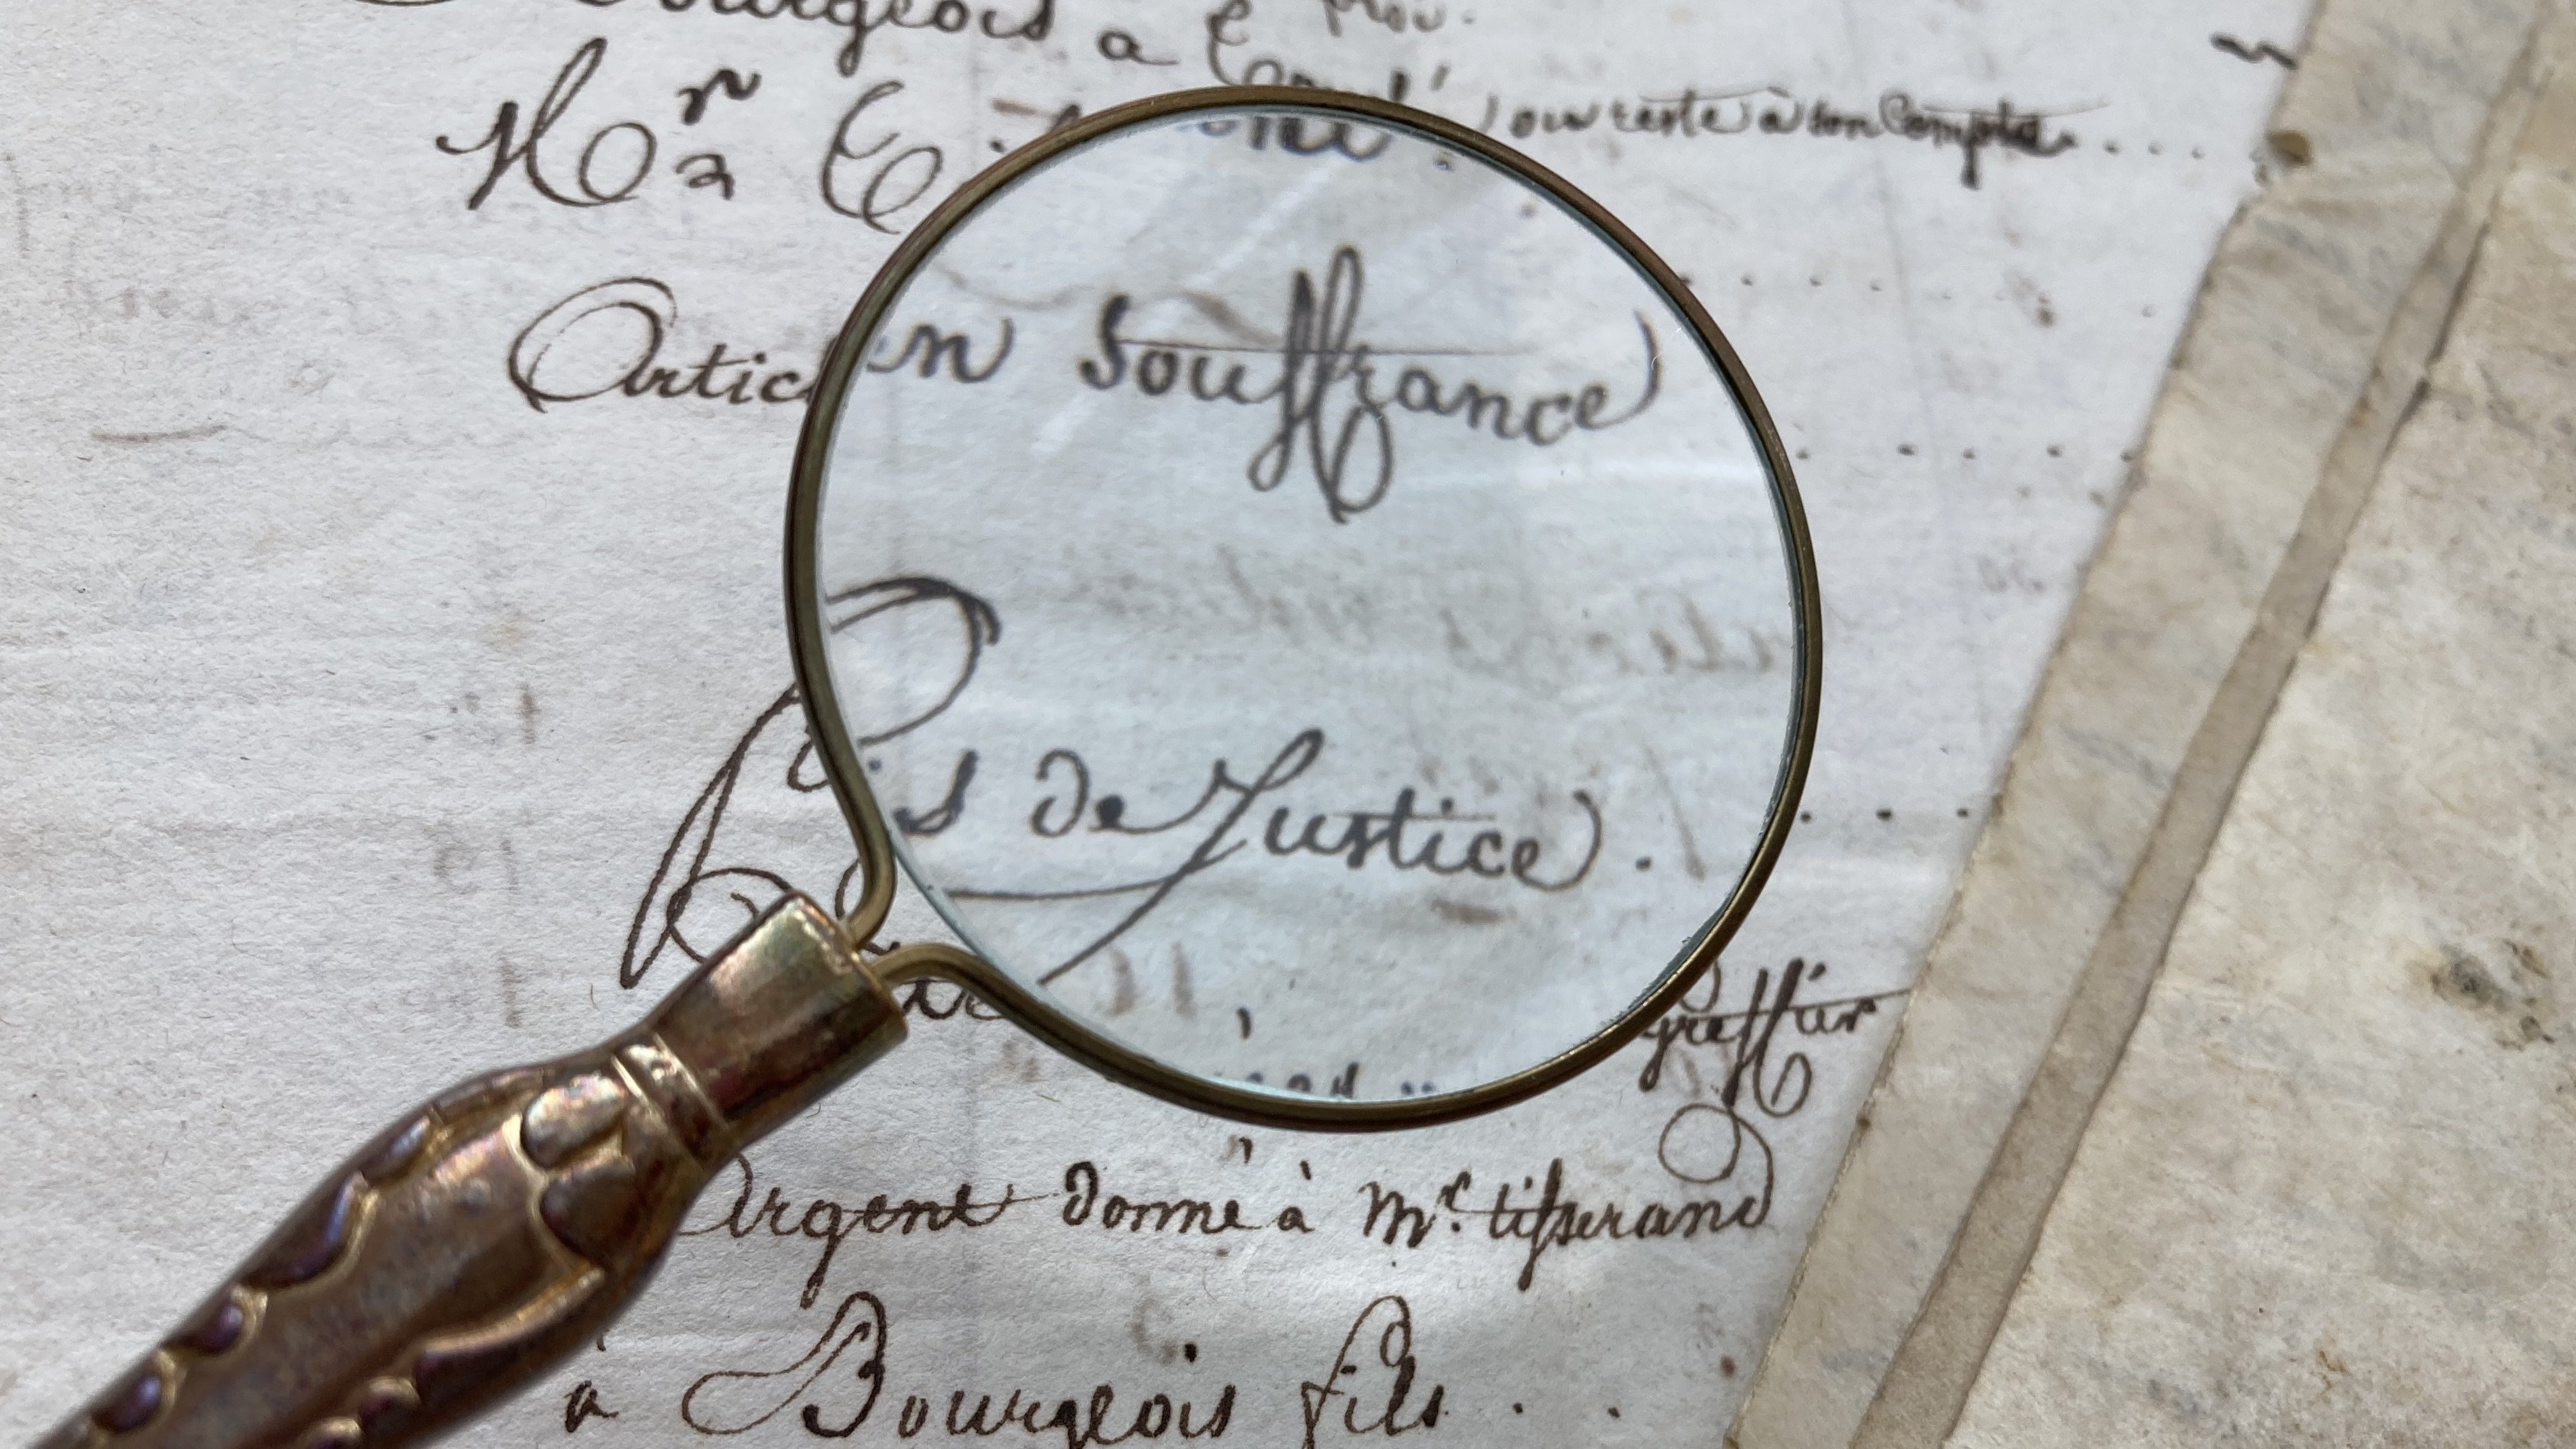 Bourgeois a
ou reste à son Compte....
Artic en Souffrance
s de Justice.
greffier
Argent donné à Mr. tisserand
à Bourgeois fils ..